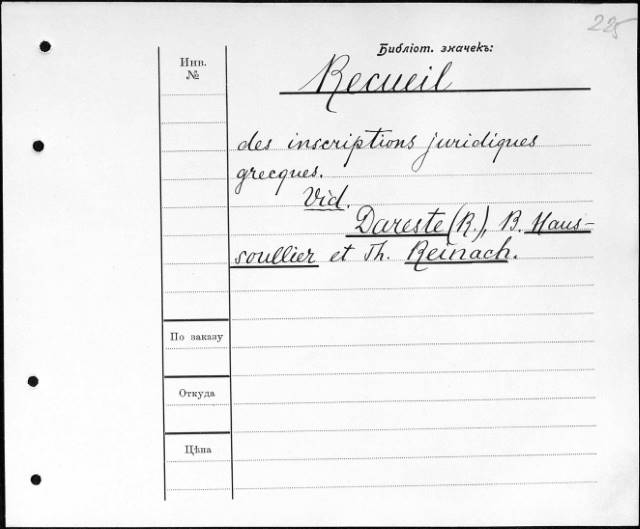 225
Библіот. значекъ:
Инв.
№
Recueil
des inscriptions juridiques
grecques.
Vid.
Dareste (R.), B. Haus-
soullier et Th. Reinach.
По заказу
Откуда
Цѣна